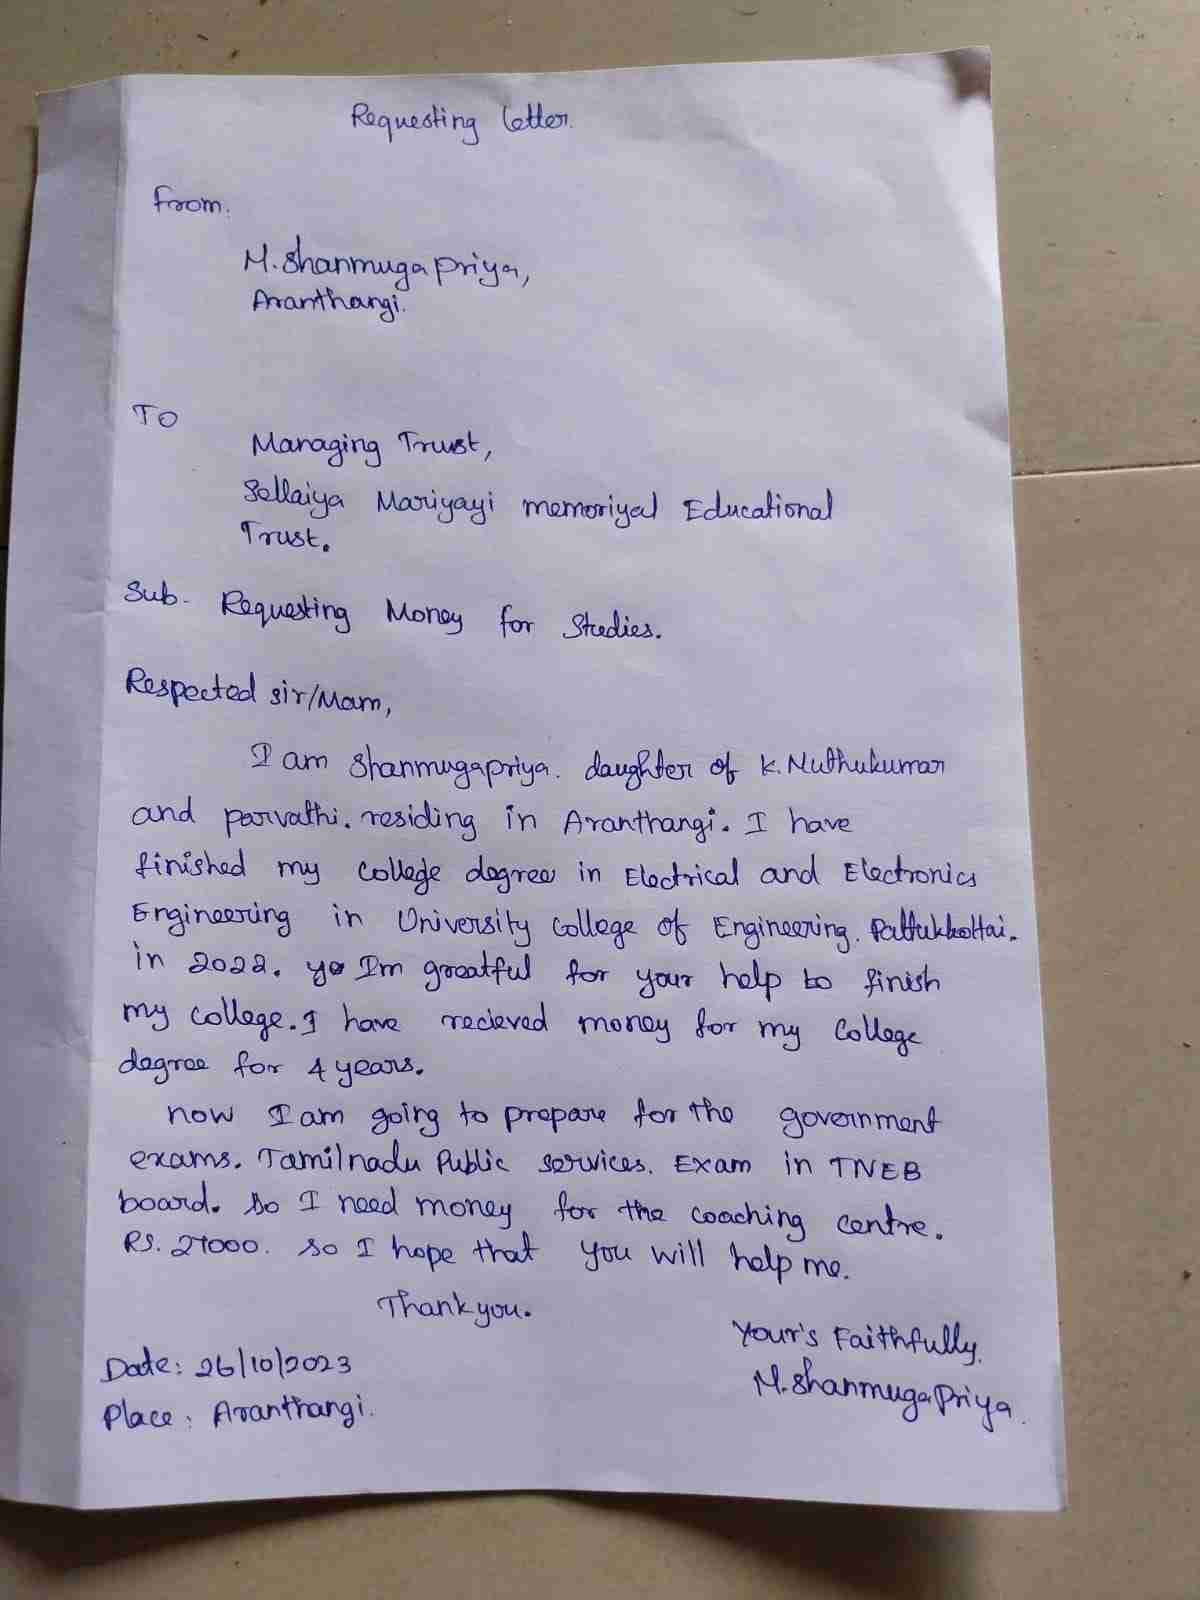 Requesting Letter.
From.
M. Shanmuga Priya,
Aranthangi.
To
Managing Trust,
Sellaiya Mariyayi memoriyal Educational
Trust.
Sub - Requesting Money for Studies.
Respected sir/Mam,
I am Shanmugapriya. daughter of K. Muthukumar
and parvathi. residing in Aranthangi. I have
finished my college degree in Electrical and Electronics
Engineering in University College of Engineering. Pattukkottai.
in 2022. I'm greatful for your help to finish
my college. I have recieved money for my college
degree for 4 years.
now I am going to prepare for the government
exams. Tamilnadu Public services. Exam in TNEB
board. so I need money for the coaching centre.
RS. 27000. so I hope that you will help me.
Thank you.
Your's Faithfully,
M. Shanmuga Priya.
Date: 26/10/2023
Place: Aranthangi.